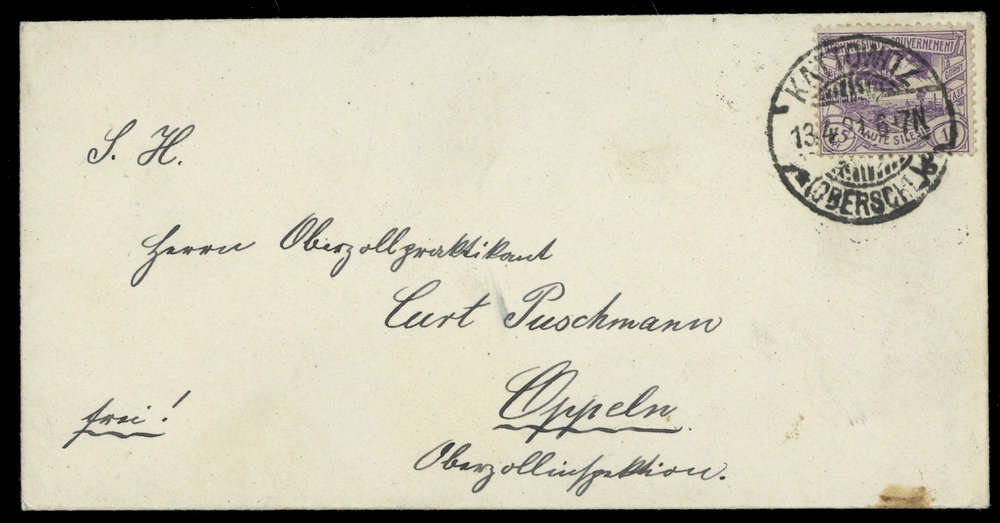 GOUVERNEMENT
HAUTE SILESIE
KATTOWITZ
13.4.21. 6-7N
(OBERSCHL)
S. H.
Herrn Oberzollpraktikant
Curt Puschmann
Oppeln
frei!
Oberzollinspektion.